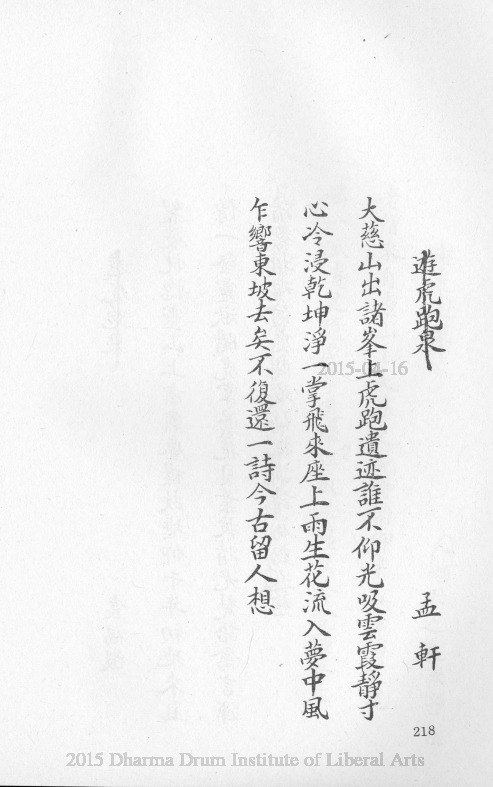 遊虎跑泉 孟軒
大慈山出諸峯上虎跑遺迹誰不仰光吸雲霞靜寸
心冷浸乾坤淨一掌飛來座上雨生花流入夢中風
乍響東坡去矣不復還一詩今古留人想
218
2015-04-16
2015 Dharma Drum Institute of Liberal Arts